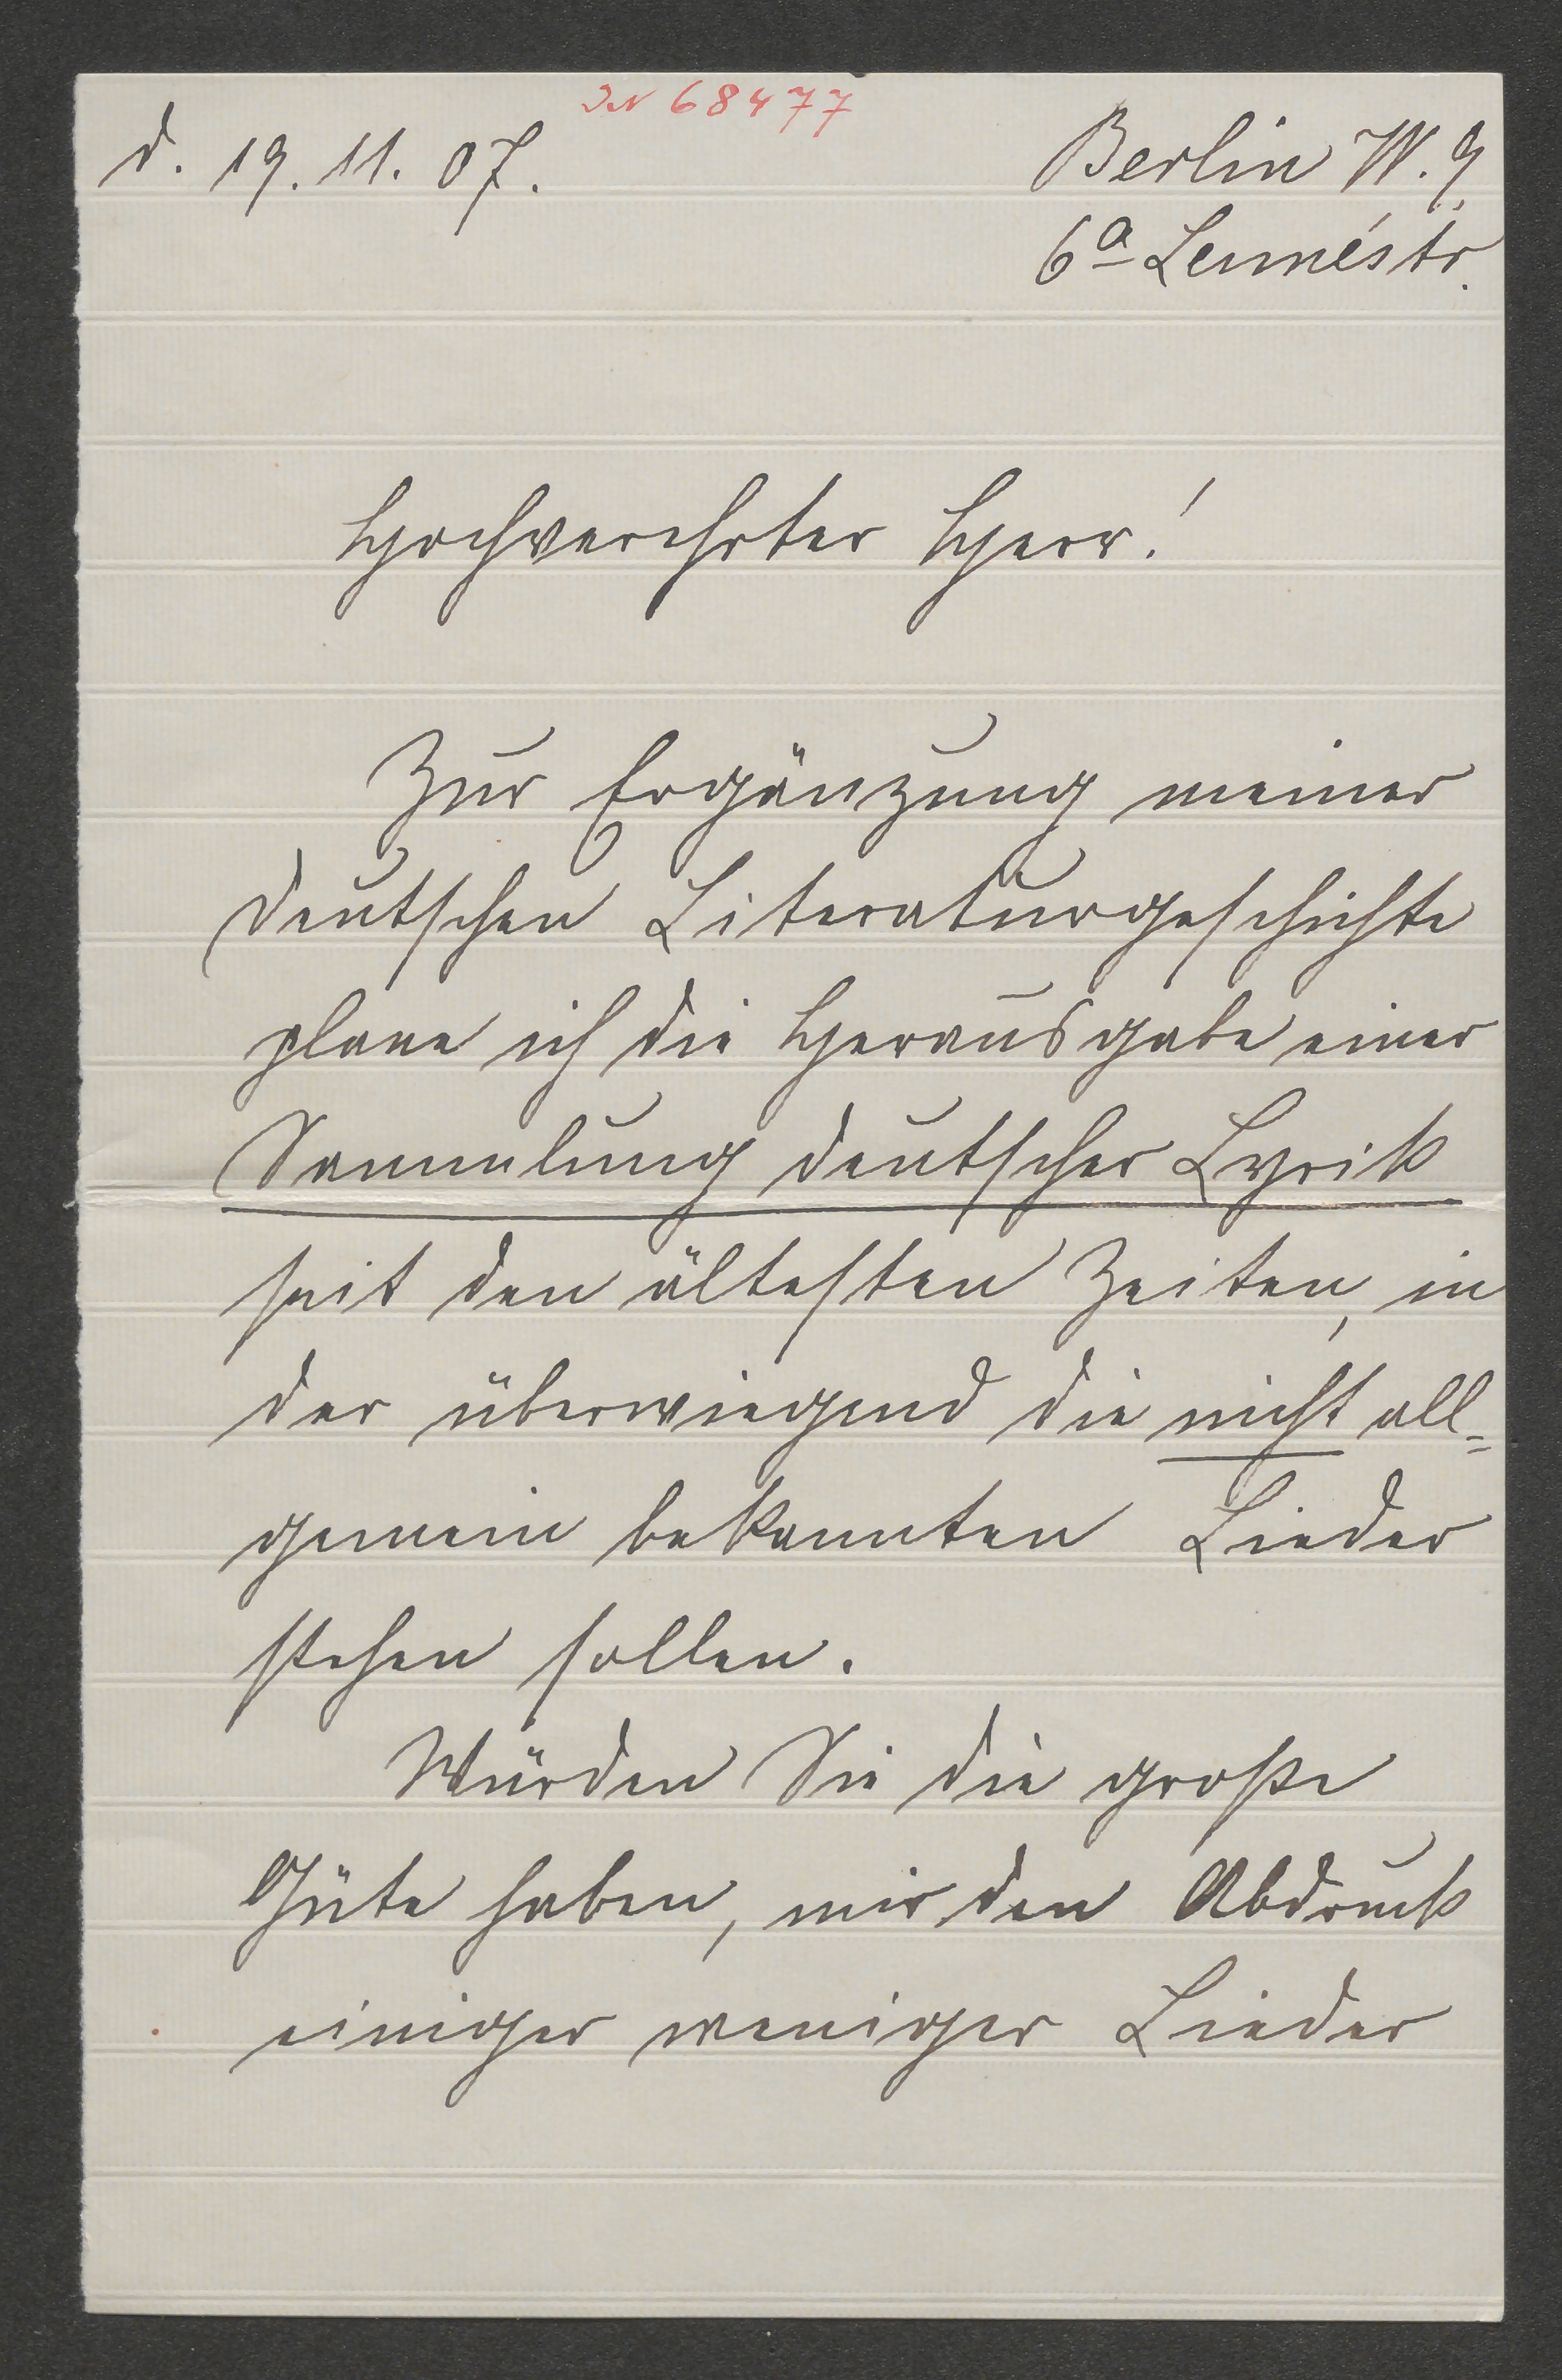 IN 68477
d. 19. 11. 07.
Berlin W. 9,
6a Lennéstr.
Hochverehrter Herr!
Zur Ergänzung meiner
deutschen Literaturgeschichte
plane ich die Herausgabe einer
Sammlung deutscher Lyrik
seit den ältesten Zeiten, in
der überwiegend die nicht all=
gemein bekannten Lieder
stehen sollen.
Würden Sie die große
Güte haben, mir den Abdruck
einiger weniger Lieder